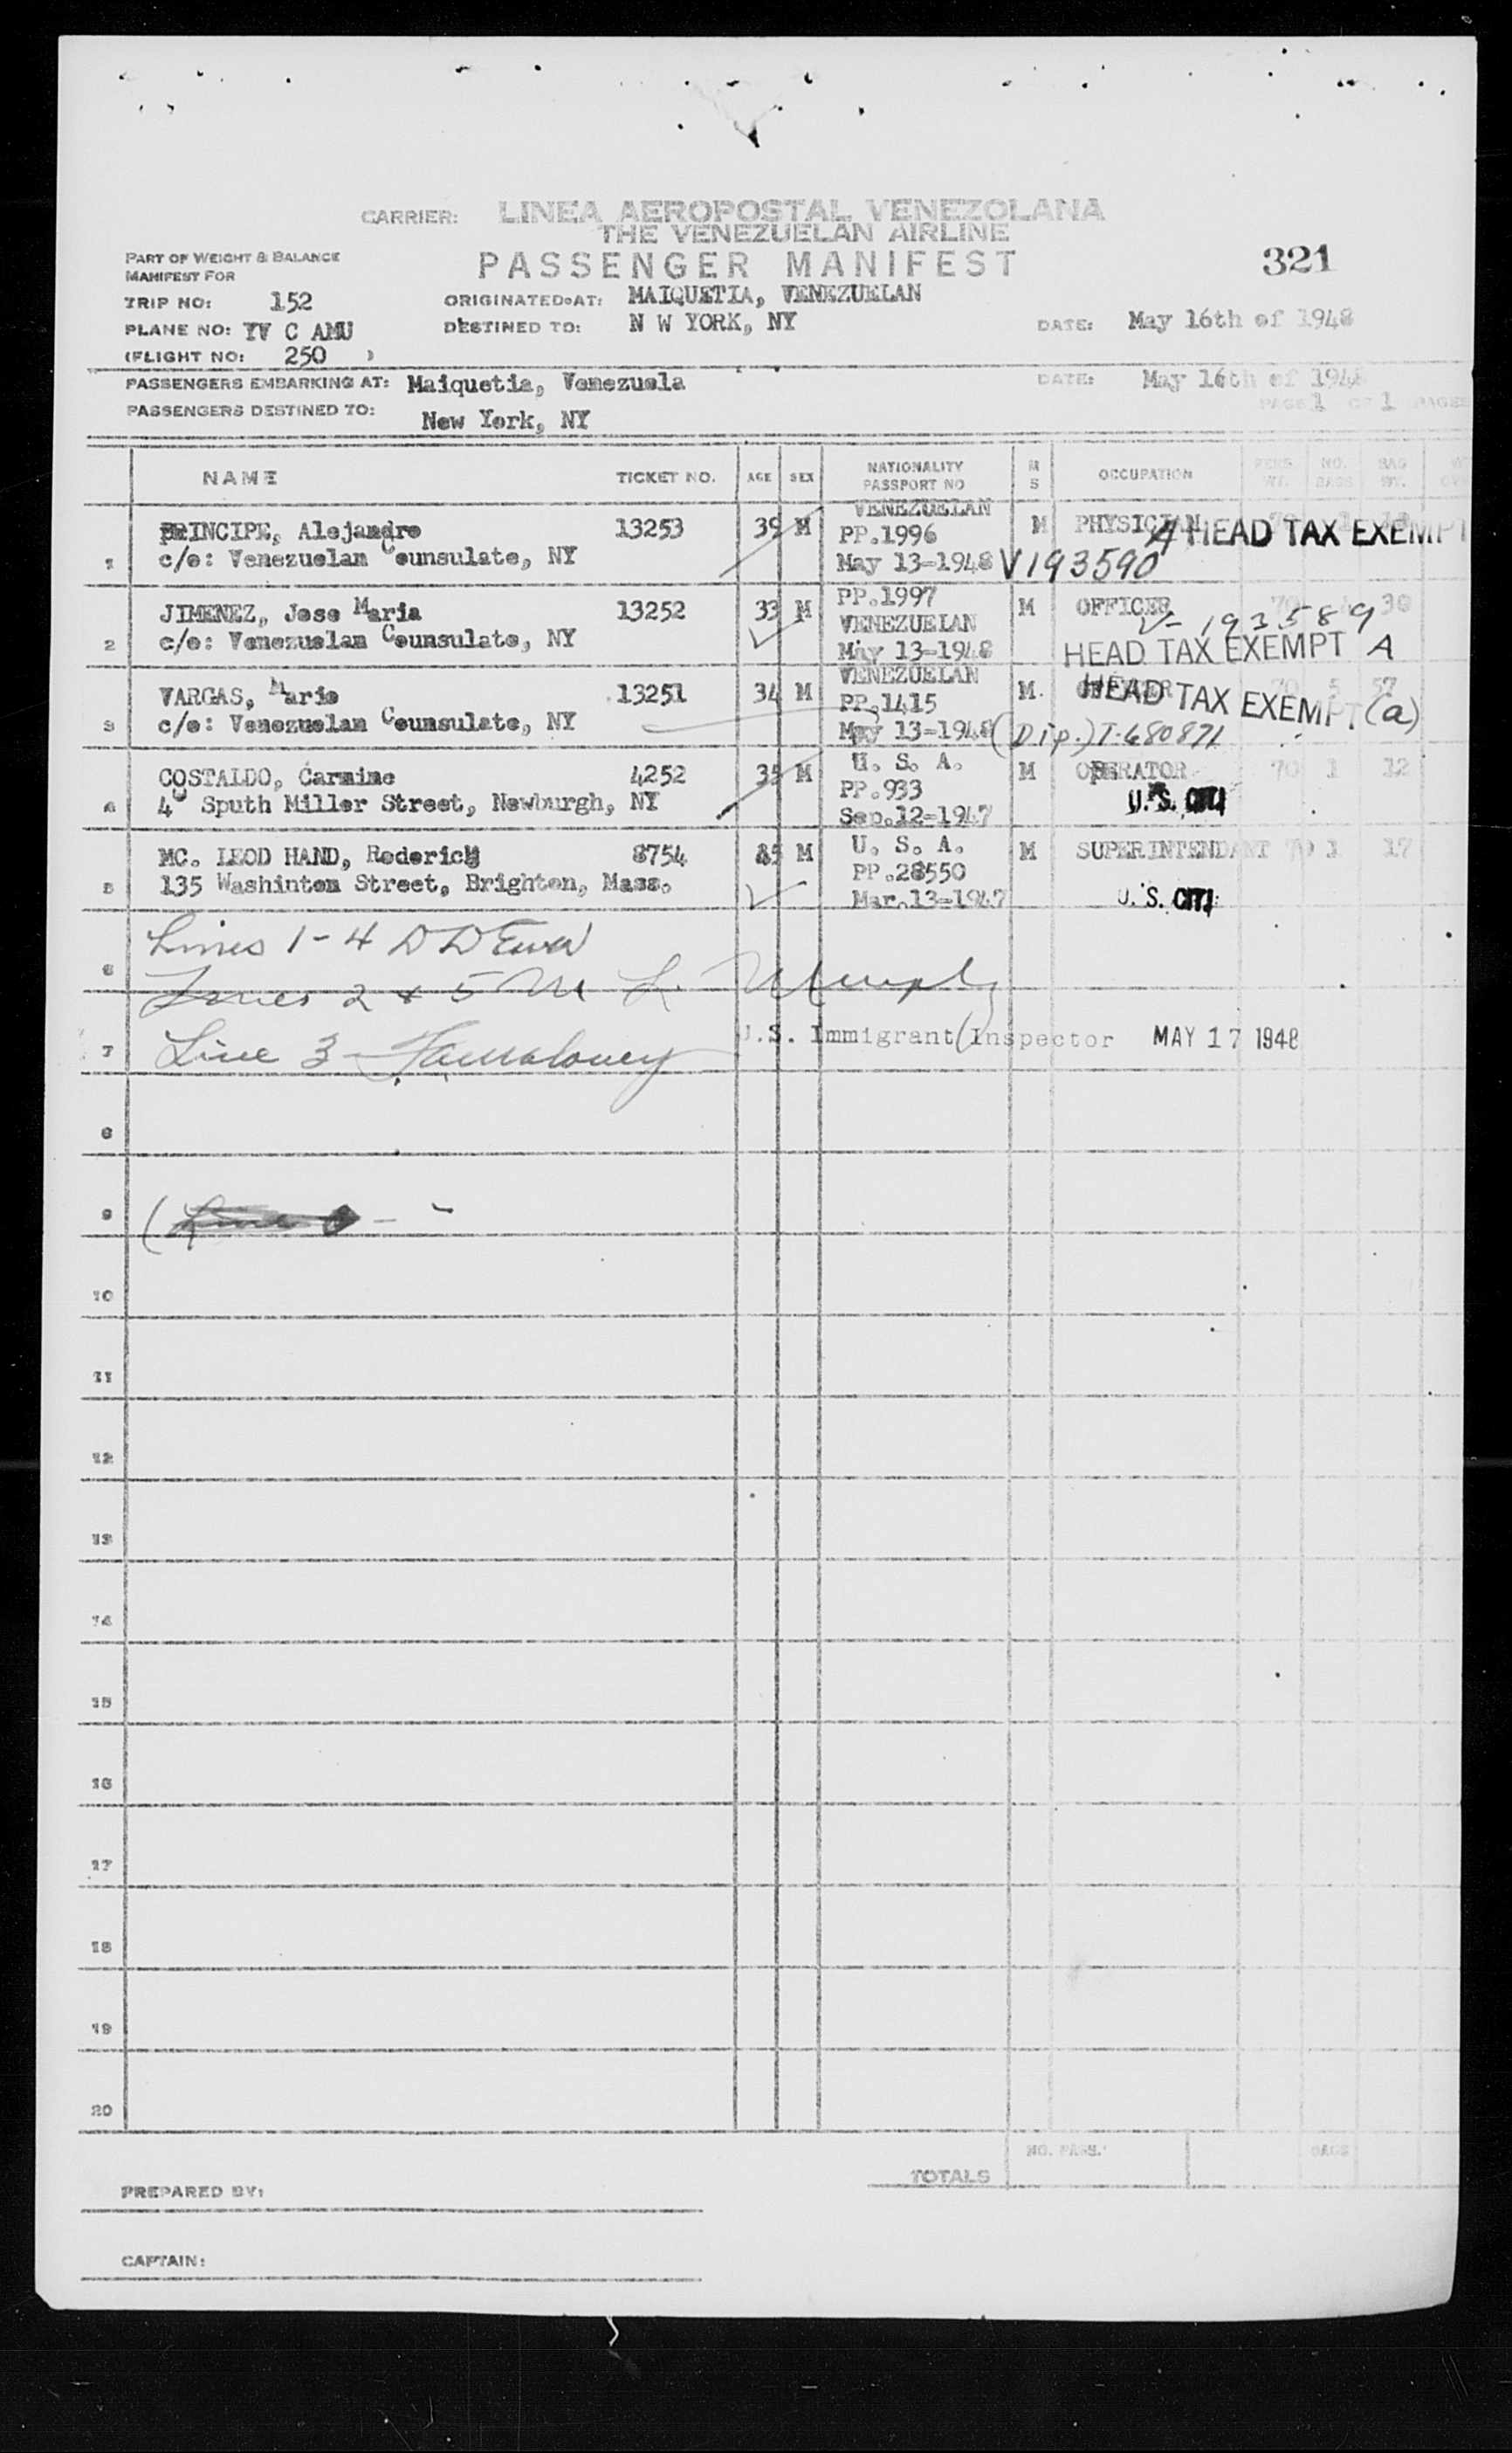 CARRIER: LINEA AEROPOSTAL VENEZOLANA
THE VENEZUELAN AIRLINE
PASSENGER MANIFEST
321
PART OF WEIGHT & BALANCE
MANIFEST FOR
TRIP NO: 152
ORIGINATED AT: MAIQUETIA, VENEZUELAN
PLANE NO: YV C AMU
DESTINED TO: N W YORK, NY
DATE: May 16th of 1948
(FLIGHT NO: 250 )
PASSENGERS EMBARKING AT: Maiquetia, Venezuela
DATE: May 16th of 1948
PASSENGERS DESTINED TO: New York, NY
PAGE 1 OF 1 PAGES
NAME TICKET NO. AGE SEX NATIONALITY PASSPORT NO M S OCCUPATION PERS WT. NO. BAGS BAG WT.
VENEZUELAN
1 PRINCIPE, Alejandro 13253 39 M PP.1996 M PHYSICIAN A HEAD TAX EXEMPT
c/o: Venezuelan Counsulate, NY May 13-1948 V193590
PP.1997
2 JIMENEZ, Jose Maria 13252 33 M VENEZUELAN M OFFICER 70 30
V-193589
c/o: Venezuelan Counsulate, NY May 13-1948 HEAD TAX EXEMPT A
VENEZUELAN
3 VARGAS, Mario 13251 34 M PP.1415 M 70 5 57
HEAD TAX EXEMPT (a)
c/o: Venezuelan Counsulate, NY May 13-1948 (Dip.) T-680871
U. S. A.
4 COSTALDO, Carmine 4252 35 M PP.933 M OPERATOR 70 1 12
4 Sputh Miller Street, Newburgh, NY Sep.12-1947 U.S. CITI
U. S. A.
5 MC. LEOD HAND, Roderick 8754 M PP.28550 M SUPERINTENDANT 70 1 17
135 Washinton Street, Brighton, Mass. Mar.13-1947 U.S. CITI
6 Lines 1-4 D D
Lines 2 & 5 M L. Murphy
U.S. Immigrant Inspector MAY 17 1948
7 Line 3
8
9
10
11
12
13
14
15
16
17
18
19
20
NO. PASS. BAGS
TOTALS
PREPARED BY:
CAPTAIN: